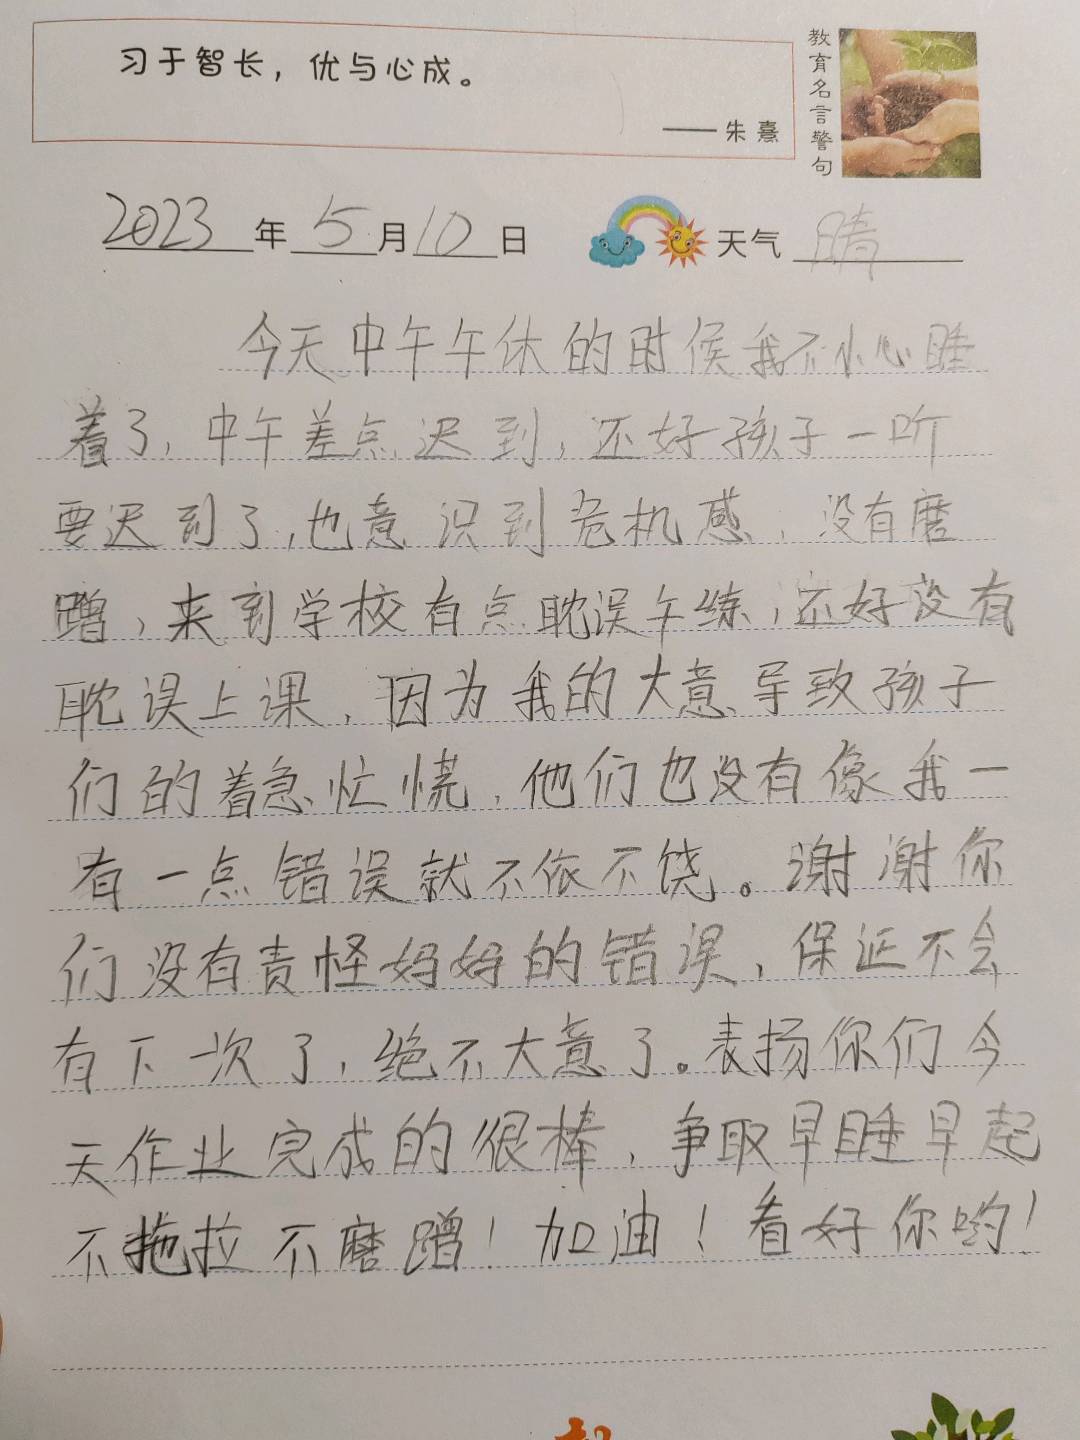 习于智长，优与心成。
——朱熹
教育名言警句
2023年5月10日 天气 晴
今天中午午休的时候我不小心睡
着了，中午差点迟到，还好孩子一听
要迟到了，也意识到危机感，没有磨
蹭，来到学校有点耽误午练，还好没有
耽误上课，因为我的大意导致孩子
们的着急忙慌，他们也没有像我一
有一点错误就不依不饶。谢谢你
们没有责怪妈妈的错误，保证不会
有下一次了，绝不大意了。表扬你们今
天作业完成的很棒，争取早睡早起
不拖拉不磨蹭！加油！看好你哟！